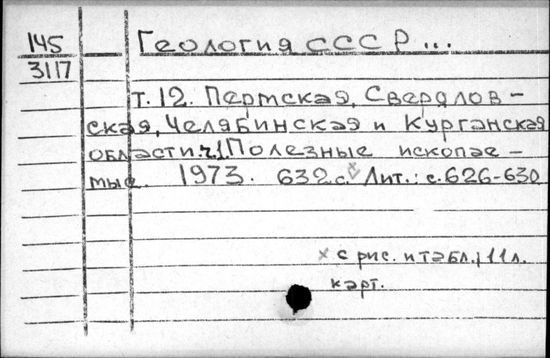 145 Геология СССР...
3117
т. 12. Пермская, Свердлов-
ская, Челябинская и Курганская
области. ч.1. Полезные ископае-
мые. 1973. 632 с.× Лит.: с. 626-630
× с рис. и табл., 11 л.
карт.